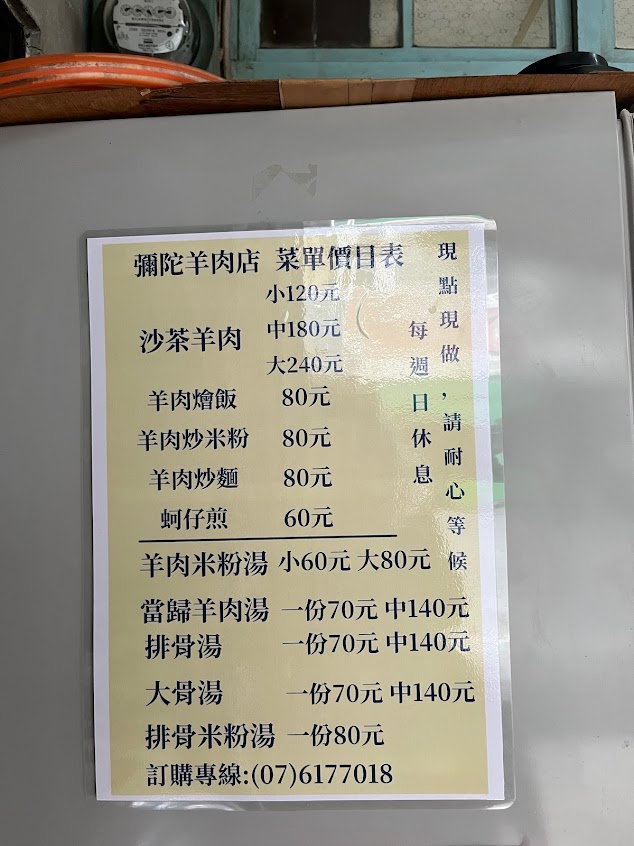 彌陀羊肉店 菜單價目表
沙茶羊肉
小120元
中180元
大240元
羊肉燴飯 80元
羊肉炒米粉 80元
羊肉炒麵 80元
蚵仔煎 60元
羊肉米粉湯 小60元 大80元
當歸羊肉湯 一份70元 中140元
排骨湯 一份70元 中140元
大骨湯 一份70元 中140元
排骨米粉湯 一份80元
訂購專線:(07)6177018
現點現做,請耐心等候
每週日休息